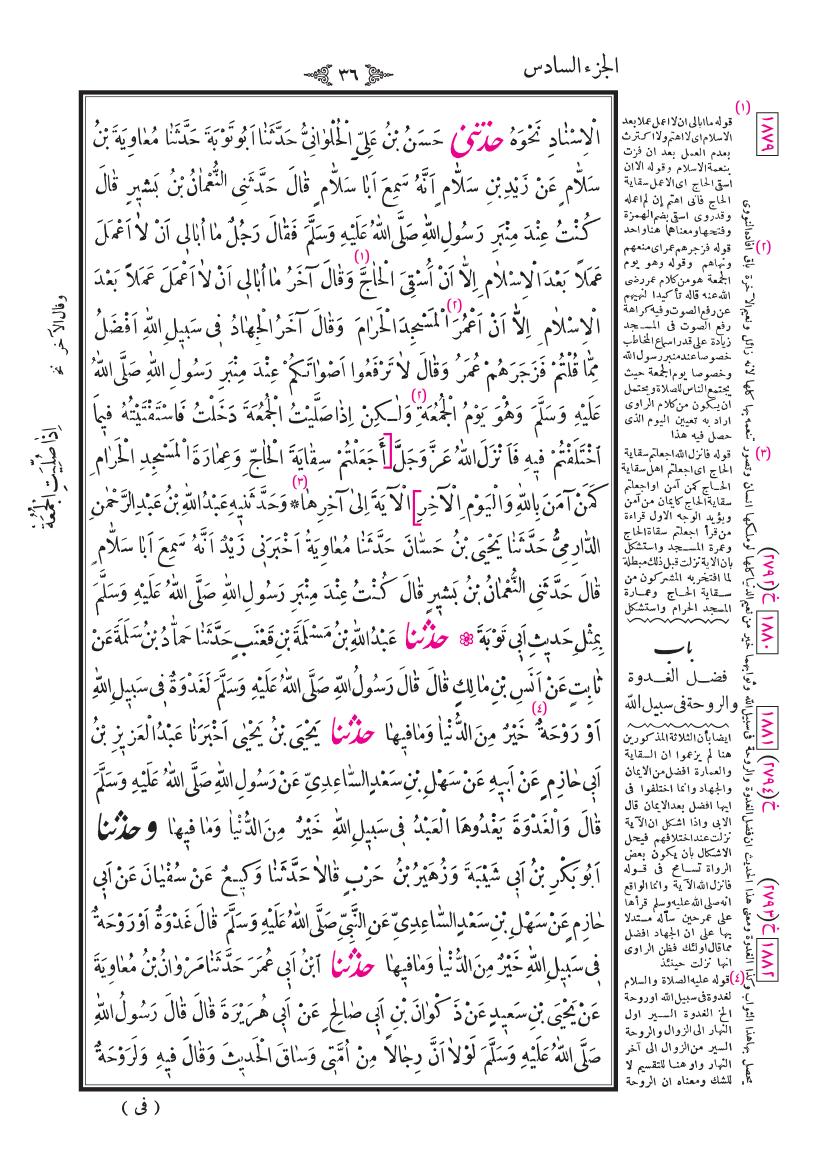 الجزء السادس
٣٦
الْاِسْنَادِ نَحْوَهُ حَدَّثَنِى حَسَنُ بْنُ عَلِىٍّ الْحُلْوَانِىُّ حَدَّثَنَا اَبُو تَوْبَةَ حَدَّثَنَا مُعَاوِيَةُ بْنُ
سَلَّامٍ عَنْ زَيْدِ بْنِ سَلَّامٍ اَنَّهُ سَمِعَ اَبَا سَلَّامٍ قَالَ حَدَّثَنِى النُّعْمَانُ بْنُ بَشِيرٍ قَالَ
كُنْتُ عِنْدَ مِنْبَرِ رَسُولِ اللّٰهِ صَلَّى اللّٰهُ عَلَيْهِ وَسَلَّمَ فَقَالَ رَجُلٌ مَا اُبَالِى اَنْ لَا اَعْمَلَ
عَمَلاً بَعْدَ الْاِسْلَامِ اِلَّا اَنْ اُسْقِىَ الْحَاجَّ (١) وَقَالَ آخَرُ مَا اُبَالِى اَنْ لَا اَعْمَلَ عَمَلاً بَعْدَ
الْاِسْلَامِ اِلَّا اَنْ اَعْمُرَ (٢) الْمَسْجِدَ الْحَرَامَ وَقَالَ آخَرُ الْجِهَادُ فِى سَبِيلِ اللّٰهِ اَفْضَلُ
مِمَّا قُلْتُمْ فَزَجَرَهُمْ عُمَرُ وَقَالَ لَا تَرْفَعُوا اَصْوَاتَكُمْ عِنْدَ مِنْبَرِ رَسُولِ اللّٰهِ صَلَّى اللّٰهُ
عَلَيْهِ وَسَلَّمَ وَهُوَ يَوْمُ الْجُمُعَةِ (٢) وَلٰكِنْ اِذَا صَلَّيْتُ الْجُمُعَةَ دَخَلْتُ فَاسْتَفْتَيْتُهُ فِيمَا
اخْتَلَفْتُمْ فِيهِ فَاَنْزَلَ اللّٰهُ عَزَّ وَجَلَّ [أَجَعَلْتُمْ سِقَايَةَ الْحَاجِّ وَعِمَارَةَ الْمَسْجِدِ الْحَرَامِ
كَمَنْ آمَنَ بِاللّٰهِ وَالْيَوْمِ الْآخِرِ] الْآيَةَ اِلَى آخِرِهَا (٣) * وَحَدَّثَنِيهِ عَبْدُ اللّٰهِ بْنُ عَبْدِ الرَّحْمٰنِ
الدَّارِمِىُّ حَدَّثَنَا يَحْيَى بْنُ حَسَّانَ حَدَّثَنَا مُعَاوِيَةُ اَخْبَرَنِى زَيْدٌ اَنَّهُ سَمِعَ اَبَا سَلَّامٍ
قَالَ حَدَّثَنِى النُّعْمَانُ بْنُ بَشِيرٍ قَالَ كُنْتُ عِنْدَ مِنْبَرِ رَسُولِ اللّٰهِ صَلَّى اللّٰهُ عَلَيْهِ وَسَلَّمَ
بِمِثْلِ حَدِيثِ اَبِى تَوْبَةَ حَدَّثَنَا عَبْدُ اللّٰهِ بْنُ مَسْلَمَةَ بْنِ قَعْنَبٍ حَدَّثَنَا حَمَّادُ بْنُ سَلَمَةَ عَنْ
ثَابِتٍ عَنْ اَنَسِ بْنِ مَالِكٍ قَالَ قَالَ رَسُولُ اللّٰهِ صَلَّى اللّٰهُ عَلَيْهِ وَسَلَّمَ لَغَدْوَةٌ فِى سَبِيلِ اللّٰهِ
اَوْ رَوْحَةٌ (٤) خَيْرٌ مِنَ الدُّنْيَا وَمَا فِيهَا حَدَّثَنَا يَحْيَى بْنُ يَحْيَى اَخْبَرَنَا عَبْدُ الْعَزِيزِ بْنُ
اَبِى حَازِمٍ عَنْ اَبِيهِ عَنْ سَهْلِ بْنِ سَعْدٍ السَّاعِدِىِّ عَنْ رَسُولِ اللّٰهِ صَلَّى اللّٰهُ عَلَيْهِ وَسَلَّمَ
قَالَ وَالْغَدْوَةَ يَغْدُوهَا الْعَبْدُ فِى سَبِيلِ اللّٰهِ خَيْرٌ مِنَ الدُّنْيَا وَمَا فِيهَا وحَدَّثَنَا
اَبُو بَكْرِ بْنُ اَبِى شَيْبَةَ وَزُهَيْرُ بْنُ حَرْبٍ قَالَا حَدَّثَنَا وَكِيعٌ عَنْ سُفْيَانَ عَنْ اَبِى
حَازِمٍ عَنْ سَهْلِ بْنِ سَعْدٍ السَّاعِدِىِّ عَنِ النَّبِىِّ صَلَّى اللّٰهُ عَلَيْهِ وَسَلَّمَ قَالَ غَدْوَةٌ اَوْ رَوْحَةٌ
فِى سَبِيلِ اللّٰهِ خَيْرٌ مِنَ الدُّنْيَا وَمَا فِيهَا حَدَّثَنَا ابْنُ اَبِى عُمَرَ حَدَّثَنَا مَرْوَانُ بْنُ مُعَاوِيَةَ
عَنْ يَحْيَى بْنِ سَعِيدٍ عَنْ ذَكْوَانَ بْنِ اَبِى صَالِحٍ عَنْ اَبِى هُرَيْرَةَ قَالَ قَالَ رَسُولُ اللّٰهِ
صَلَّى اللّٰهُ عَلَيْهِ وَسَلَّمَ لَوْلَا اَنَّ رِجَالاً مِنْ اُمَّتِى وَسَاقَ الْحَدِيثَ وَقَالَ فِيهِ وَلَرَوْحَةٌ
( فى )
وقال الآخر نخ
اِذَا صُلِّيَتِ الْجُمُعَةُ
(١)
قوله ما ابالى ان لا اعمل عملا بعد
الاسلام اى لا اهتم ولا اكترث
بعدم العمل بعد ان فزت
بنعمة الاسلام وقوله الا ان
اسقى الحاج اى الا عمل سقاية
الحاج فانى اهتم ان لم اعمله
وقد روى اسقى بضم الهمزة
وفتحها ومعناها هنا واحد
(٢)
قوله فزجرهم عمر اى منعهم
ونهاهم وقوله وهو يوم
الجمعة هو من كلام عمر رضى
الله عنه قاله تأكيدا لنهيهم
عن رفع الصوت وفيه كراهة
رفع الصوت فى المسجد
زيادة على قدر اسماع المخاطب
خصوصا عند منبر رسول الله
وخصوصا يوم الجمعة حيث
يجتمع الناس للصلاة ويحتمل
ان يكون من كلام الراوى
اراد به تعيين اليوم الذى
حصل فيه هذا
(٣)
قوله فانزل الله اجعلتم سقاية
الحاج اى اجعلتم اهل سقاية
الحاج كمن آمن او اجعلتم
سقاية الحاج كايمان من آمن
ويؤيد الوجه الاول قراءة
من قرأ اجعلتم سقاة الحاج
وعمرة المسجد واستشكل
بان الاية نزلت قبل ذلك مبطلة
لما افتخر به المشركون من
سقاية الحاج وعمارة
المسجد الحرام واستشكل
باب
فضل الغدوة
والروحة فى سبيل الله
ايضا بأن الثلاثة المذكورين
هنا لم يزعموا ان السقاية
والعمارة افضل من الايمان
والجهاد وانما اختلفوا فى
ايها افضل بعد الايمان قال
الابى واذا اشكل ان الآية
نزلت عند اختلافهم فيحل
الاشكال بان يكون بعض
الرواة تسامح فى قوله
فانزل الله الآية وانما الواقع
انه صلى الله عليه وسلم قرأها
على عمر حين سأله مستدلا
بها على ان الجهاد افضل
مما قال اولئك فظن الراوى
انها نزلت حينئذ
(٤)
قوله عليه الصلاة والسلام
لغدوة فى سبيل الله او روحة
الخ الغدوة السير اول
النهار الى الزوال والروحة
السير من الزوال الى آخر
النهار واو هنا للتقسيم لا
للشك ومعناه ان الروحة
يحصل بها هذا الثواب وكذا الغدوة ومعنى هذا الحديث ان فضل الغدوة والروحة فى سبيل الله وثوابهما خير من نعيم الدنيا كلها لو ملكها انسان وتصور تنعمه بها كلها لانه زائل ونعيم الآخرة باق افاده النووى
١٨٧٩
خ (٢٧٩٢)
١٨٨٠
١٨٨١
خ (٢٧٩٤)
خ (٢٧٩٣)
١٨٨٢